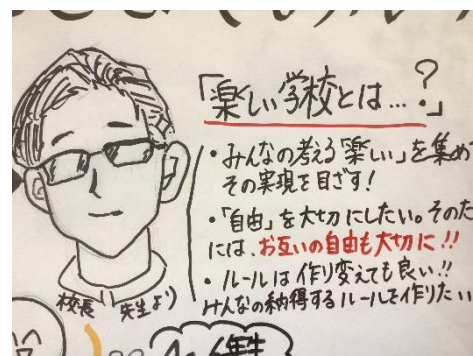 「楽しい学校とは…?」
・みんなの考える「楽しい」を集め
その実現を目ざす!
・「自由」を大切にしたい。そのた
には、お互いの自由も大切に!!
・ルールは作り変えても良い!!
みんなの納得するルールを作りたい
校長 先生より
年生